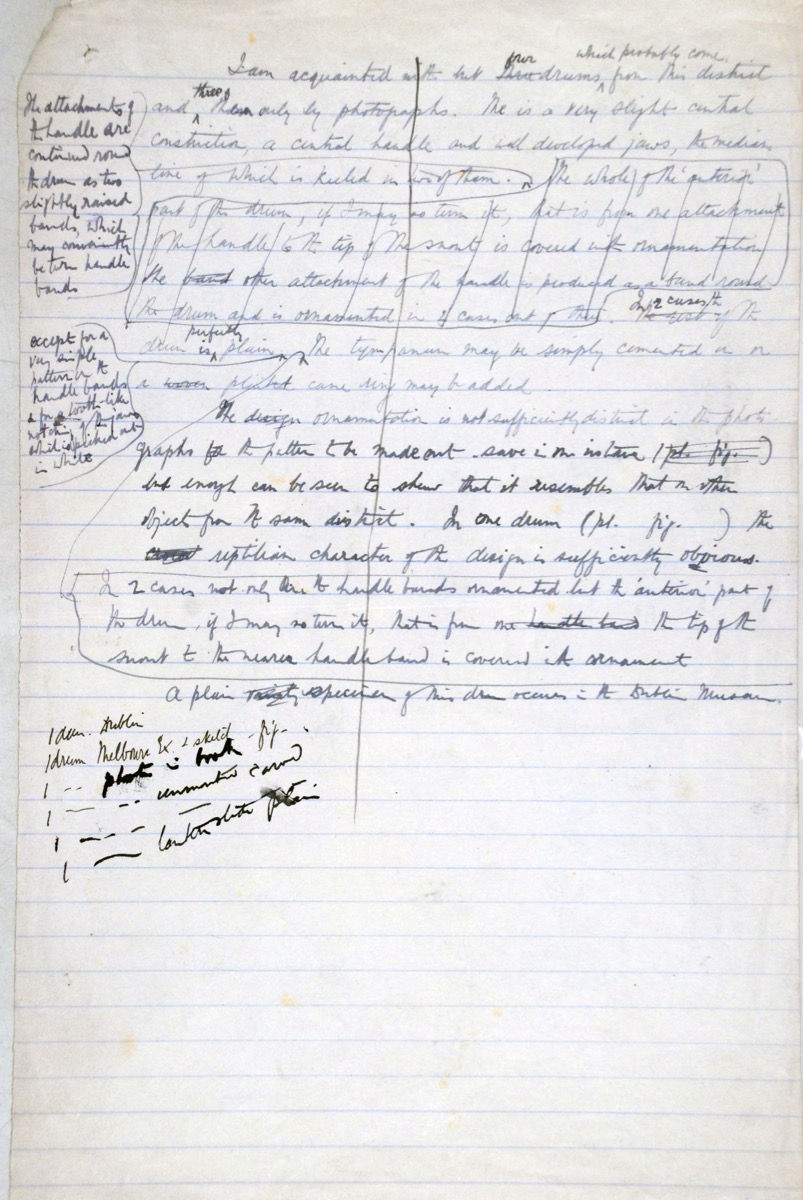 I am acquainted with but three four drums which probably come from this district
and three of them only by photographs. The is a very slight central
constriction, a central handle and well developed jaws, the median
line of which is keeled in two of them. The whole of the 'anterior'
part of the drum, if I may so term it, that is from one attachment
of the handle to the tip of the snout is covered with ornamentation
the band other attachment of the handle is produced as a band round
the drum and is ornamented in 2 cases out of three. In 2 cases the rest of the
drum is perfectly plain. The tympanum may be simply cemented on or
a woven plaited cane ring may be added.
The attachments of
the handle are
continued round
the drum as two
slightly raised
bands, which
may conveniently
be term handle
bands
except for a
very simple
pattern on the
handle bands
a tooth-like
notching of the jaws
which is picked out
in white
The design ornamentation is not sufficiently distinct in the photo
graphs for the pattern to be made out save in one instance (pl. fig. )
but enough can be seen to shew that it resembles that on other
object from the same district. In one drum (pl. fig. ) the
reptilian character of the design is sufficiently obvious.
In 2 cases not only are the handle bands ornamented but the 'anterior' part of
the drum, if I may so term it, that is from one handle band the tip of the
snout to the nearer handle band is covered with ornament
A plain specimen of this drum occurs in the Dublin Museum.
1 drum. Dublin
1 drum Melbourne Ex. 2 sketch - fig.
1 -- photo in book
1 -- -- unmounted carved
1 -- -- --
1 -- plain